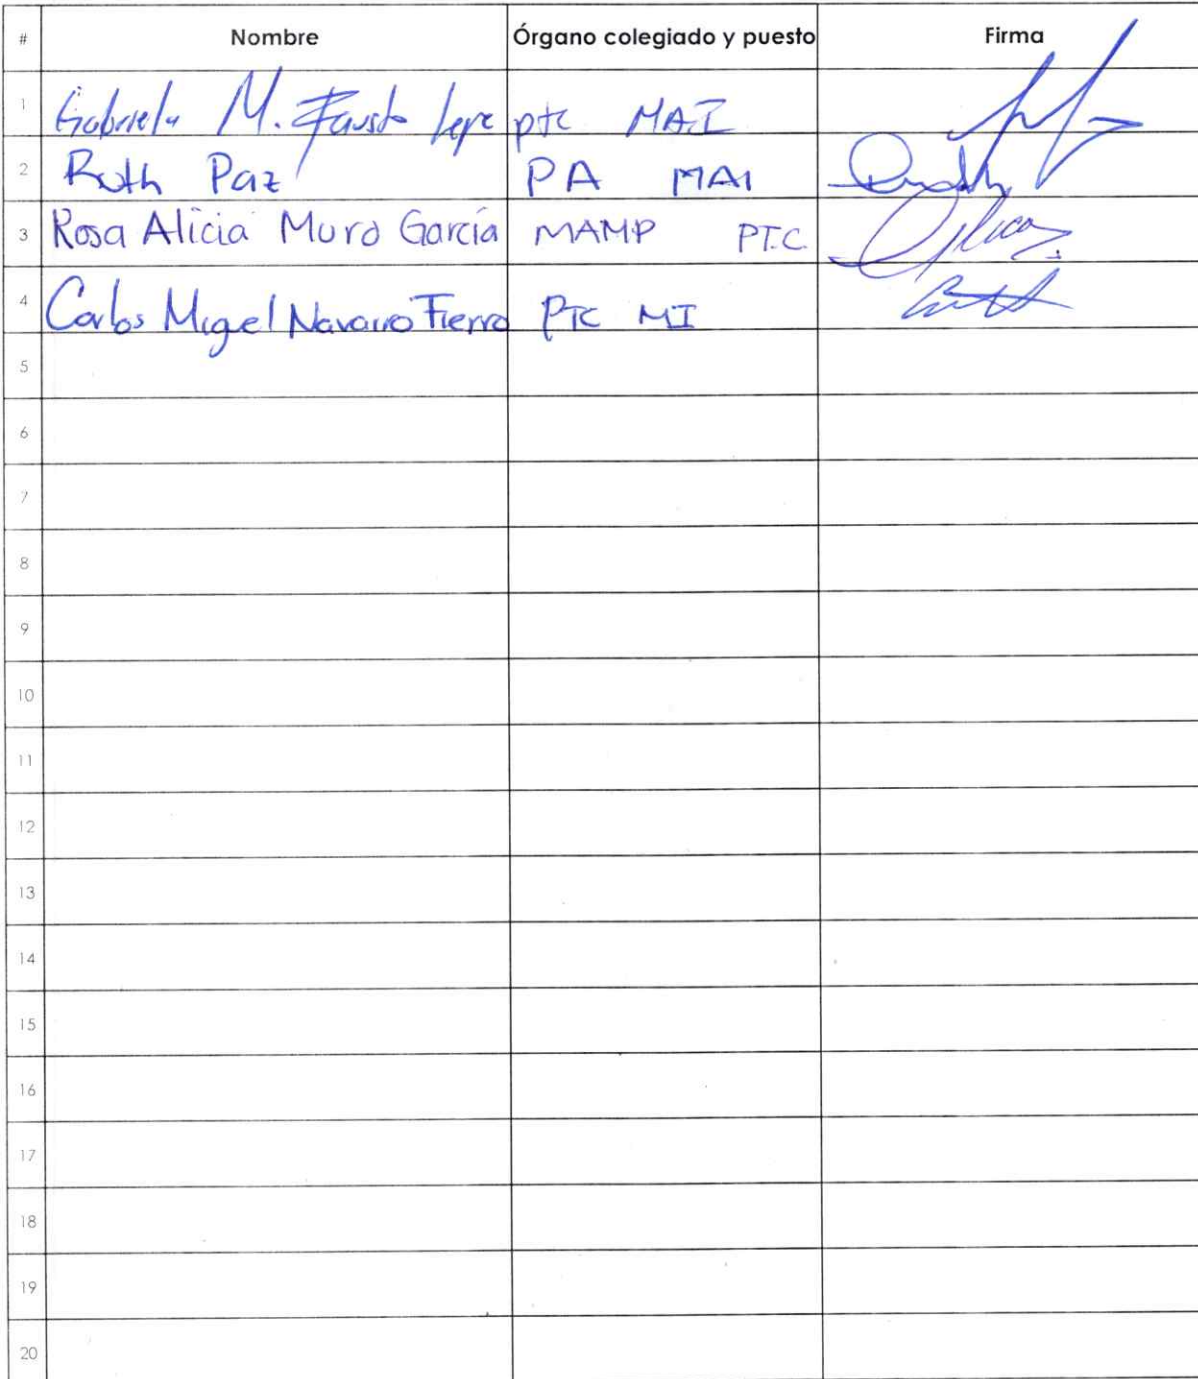 # Nombre Órgano colegiado y puesto Firma
1 Gabriela M. Fausto Lepe ptc MAI
2 Ruth Paz PA MAI
3 Rosa Alicia Muro García MAMP PTC
4 Carlos Miguel Navarro Fierro PTC MI
5
6
7
8
9
10
11
12
13
14
15
16
17
18
19
20